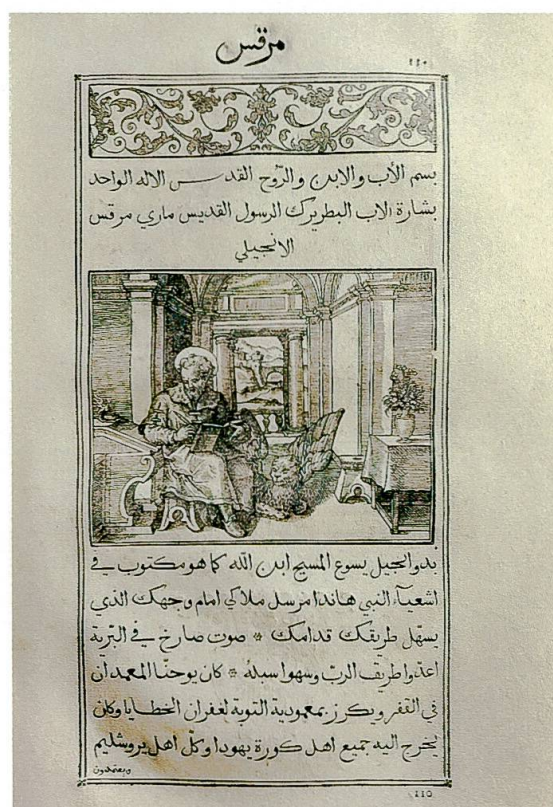 مرقس
١١٠
بسم الأب والابن والرّوح القدس الاله الواحد
بشارة الاب البطريرك الرسول القديس ماري مرقس
الانجيلي
بدو انجيل يسوع المسيح ابن الله كما هو مكتوب في
اشعيآء النبي هانذا مرسل ملاكي امام وجهك الذي
يسهّل طريقك قدامك * صوت صارخ في البّرية
اعدّوا طريق الربّ وسهوا سبله * كان يوحنّا المعمدان
في القفر ويكرز بمعمودية التوبة لغفران الخطايا وكان
يخرج اليه جميع اهل كورة يهودا وكلّ اهل يروشليم
ويعتمدون
110